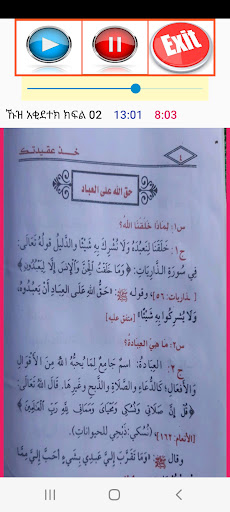 Exit
ኹዝ አቂደተክ ክፍል 02 13:01 8:03
خذ عقيدتك
١
حق الله على العباد
س١: لِمَاذَا خَلَقَنَا اللهُ؟
ج١: خَلَقَنَا لِنَعْبُدَهُ وَلَا نُشْرِكَ بِهِ شَيْئًا وَالدَّلِيلُ قَوْلُهُ تَعَالَى:
فِي سُورَةِ الذَّارِيَاتِ: ﴿وَمَا خَلَقْتُ الْجِنَّ وَالْإِنْسَ إِلَّا لِيَعْبُدُونِ﴾
[ذاريات: ٥٦] وقوله ﷺ: «حَقُّ اللهِ عَلَى الْعِبَادِ أَنْ يَعْبُدُوهُ،
وَلَا يُشْرِكُوا بِهِ شَيْئًا» [متفق عليه]
س٢: مَا هِيَ الْعِبَادَةُ؟
ج٢: الْعِبَادَةُ: اسْمٌ جَامِعٌ لِمَا يُحِبُّهُ اللهُ مِنَ الْأَقْوَالِ
وَالْأَفْعَالِ: كَالدُّعَاءِ وَالصَّلَاةِ وَالذَّبْحِ وَغَيْرِهَا. قَالَ اللهُ تَعَالَى:
﴿قُلْ إِنَّ صَلَاتِي وَنُسُكِي وَمَحْيَايَ وَمَمَاتِي لِلَّهِ رَبِّ الْعَالَمِينَ﴾
[الأنعام: ١٦٢] (نُسُكِي: ذَبْحِي لِلْحَيَوَانَاتِ).
وقال ﷺ: «وَمَا تَقَرَّبَ إِلَيَّ عَبْدِي بِشَيْءٍ أَحَبَّ إِلَيَّ مِمَّا